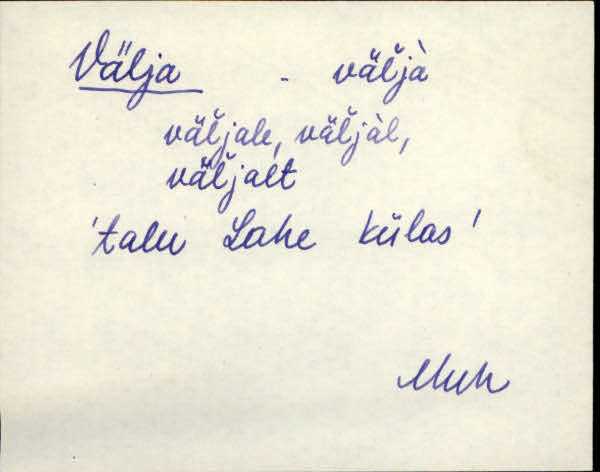 Välja - väl̆jà
väl̆jale, väl̆jàl,
väl̆jalt
'talu Lahe külas'
Muh